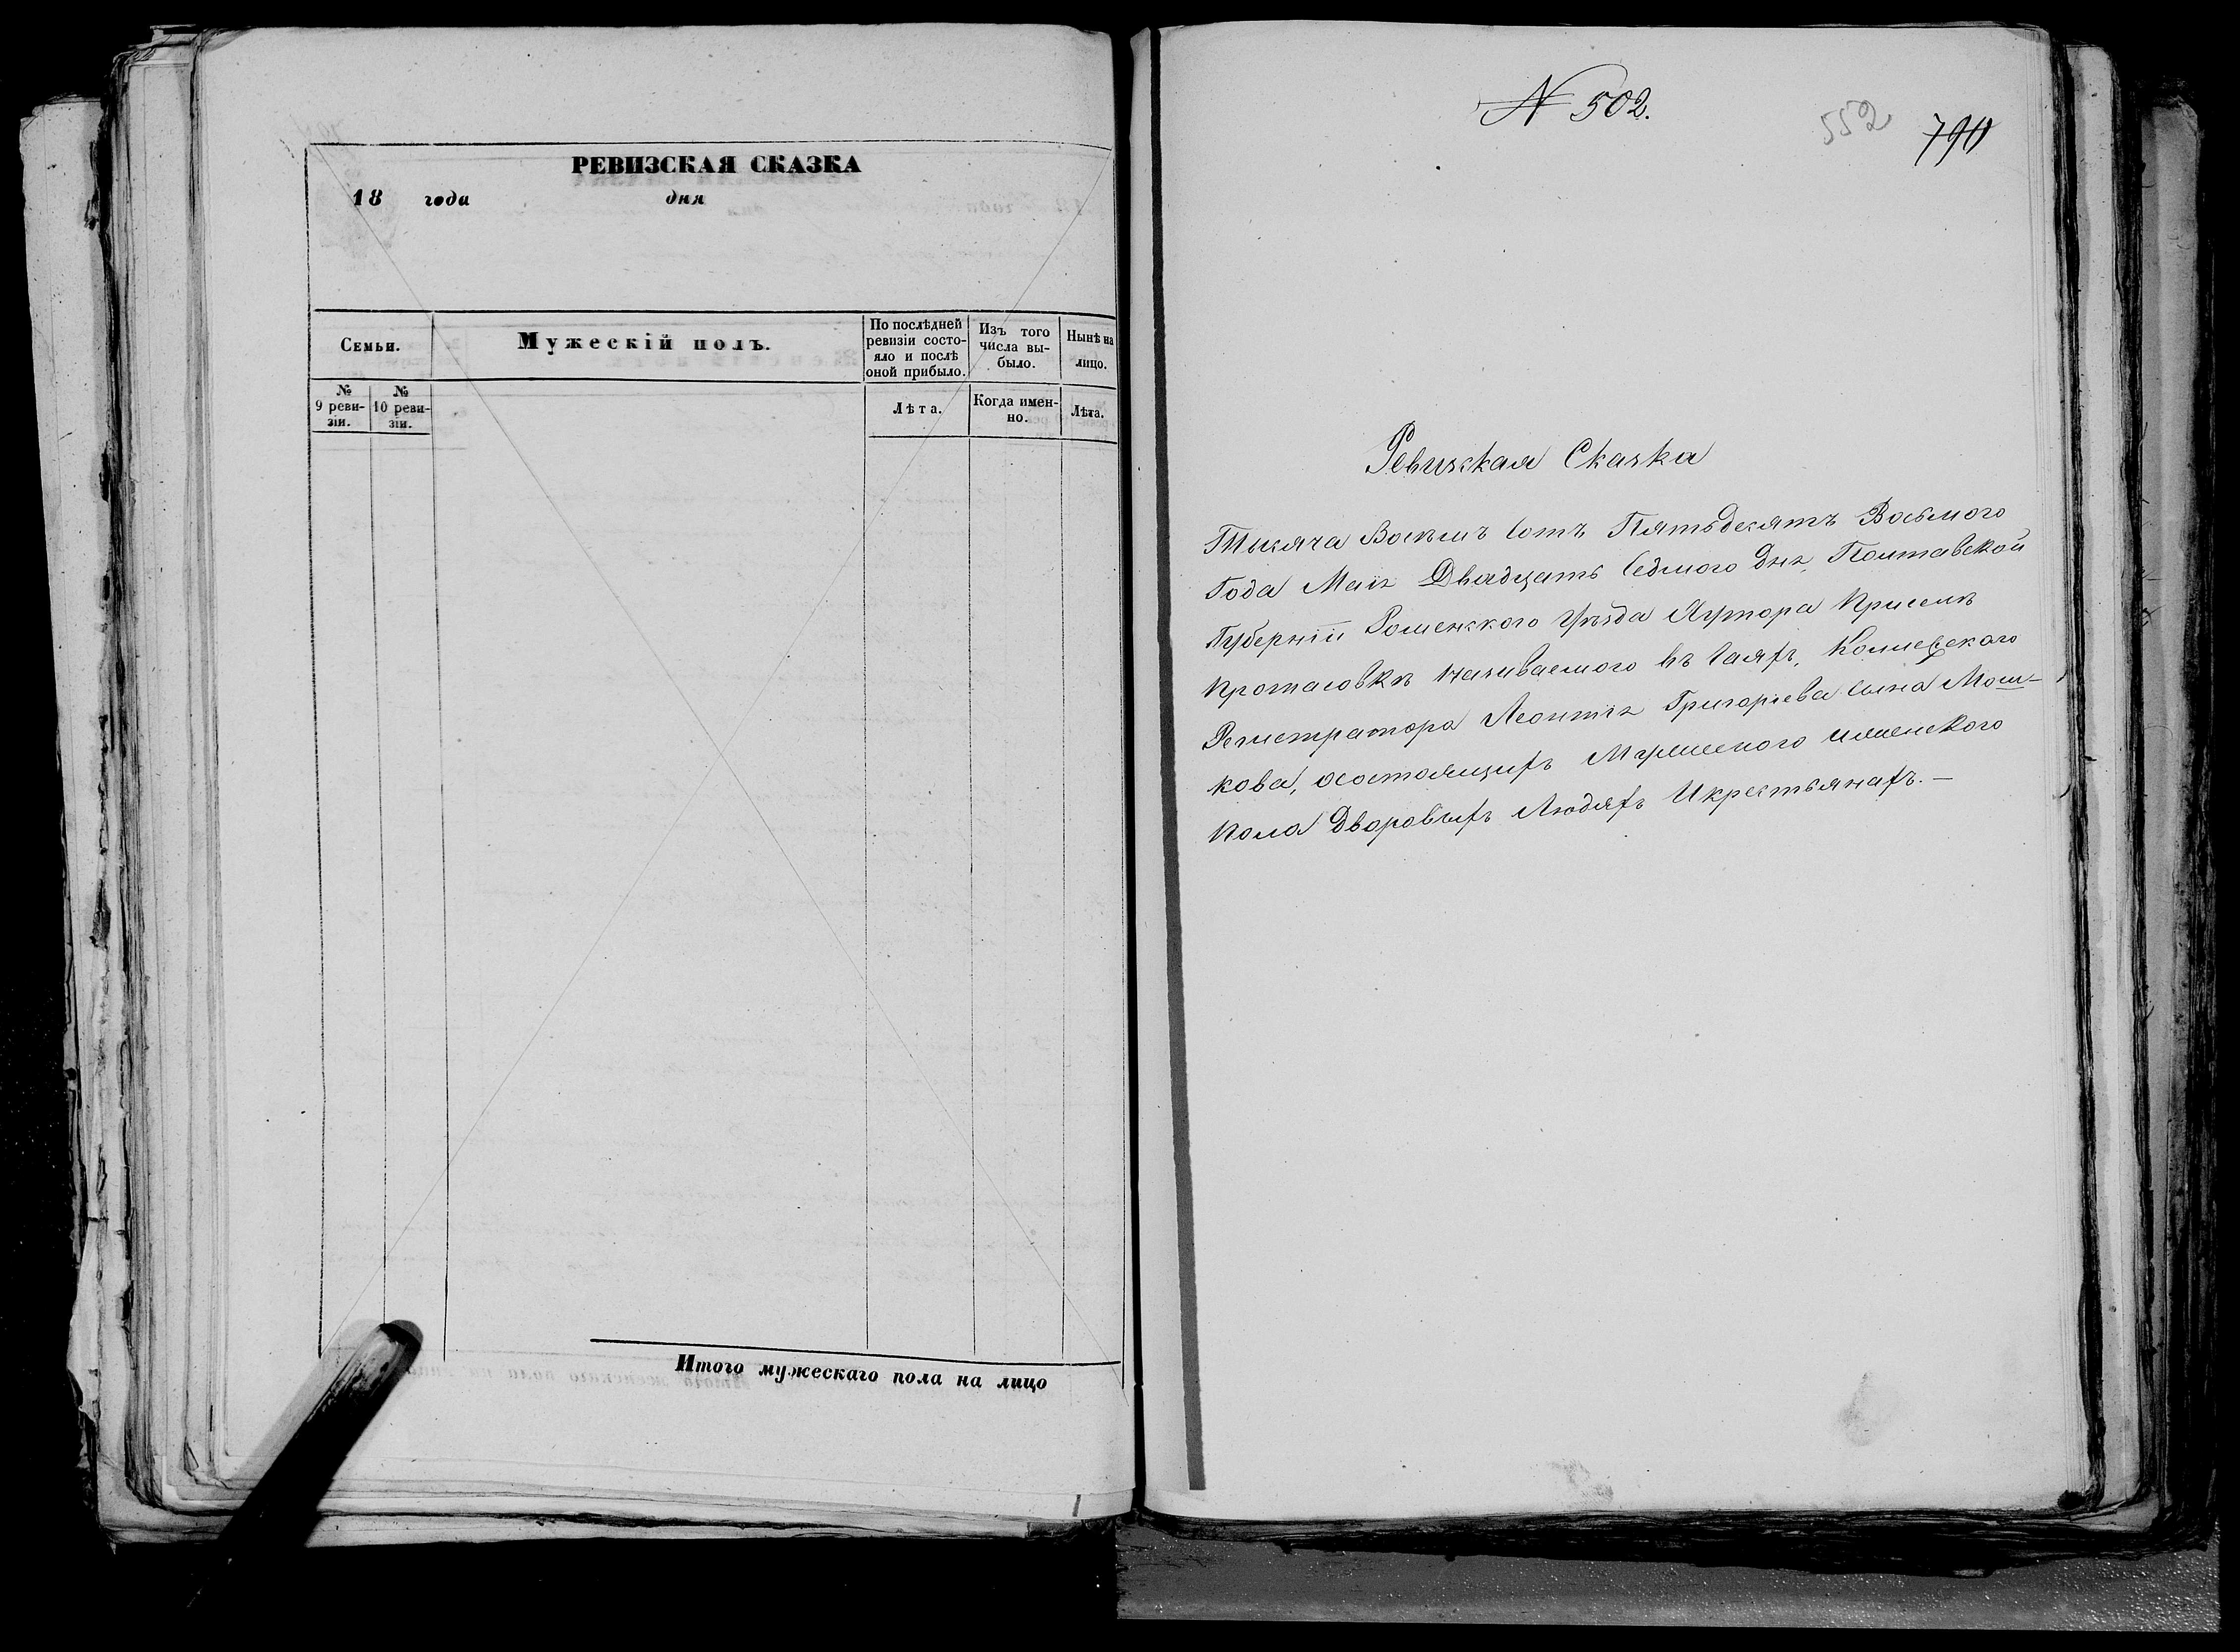 РЕВИЗСКАЯ СКАЗКА
18 года дня
Семьи.
Мужескій полъ.
По послѣдней ревизіи состо-
яло и послѣ
оной прибыло.
Изъ того
числа вы-
было.
Нынѣ на
лицо.
№
9 реви-
зіи.
№
10 реви-
зіи.
Лѣта.
Когда имен-
но.
Лѣта.
Итого мужескаго пола на лицо
№ 502.
552
790
Ревизская Сказка
Тысяча Восемъ Сотъ Пятьдесятъ Восьмого
Года Маія Двадцать Седмого дня, Полтавской
Губерніи Роменского Уѣзда Хутора При селѣ
Протасовкѣ называемого въ Гаяхъ, Коллежского
Регистратора Леонтія Григоріева Сына Мош-
кова, осостоящихъ Мужеского иженского
Пола Дворовыхъ Людяхъ Икрестьянахъ.—